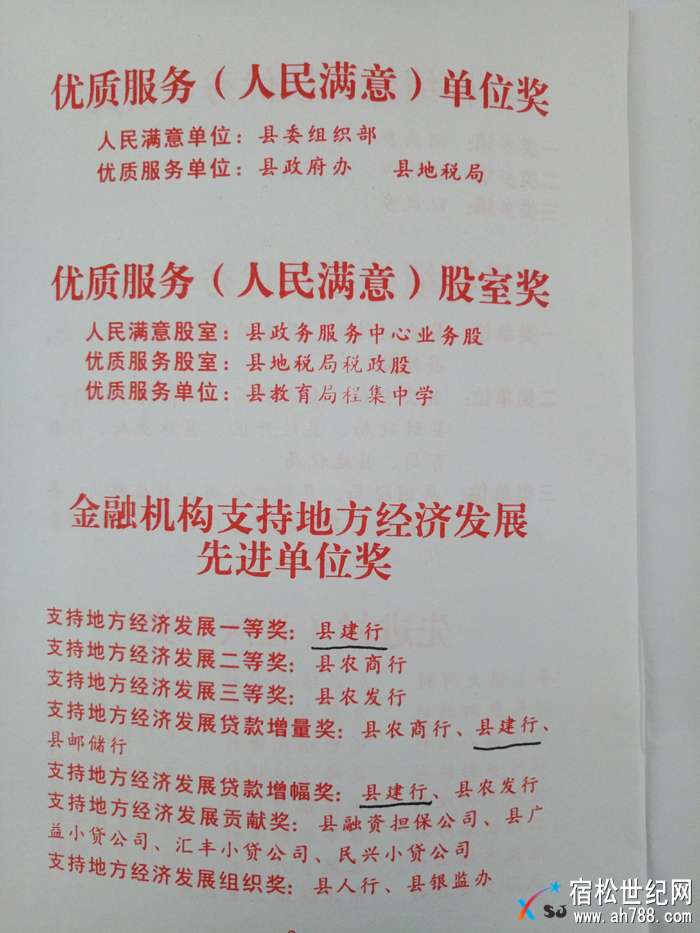 优质服务（人民满意）单位奖
人民满意单位：县委组织部
优质服务单位：县政府办 县地税局
优质服务（人民满意）股室奖
人民满意股室：县政务服务中心业务股
优质服务股室：县地税局税政股
优质服务单位：县教育局程集中学
金融机构支持地方经济发展
先进单位奖
支持地方经济发展一等奖：县建行
支持地方经济发展二等奖：县农商行
支持地方经济发展三等奖：县农发行
支持地方经济发展贷款增量奖：县农商行、县建行、
县邮储行
支持地方经济发展贷款增幅奖：县建行、县农发行
支持地方经济发展贡献奖：县融资担保公司、县广
益小贷公司、汇丰小贷公司、民兴小贷公司
支持地方经济发展组织奖：县人行、县银监办
宿松世纪网
XSJ www.ah788.com